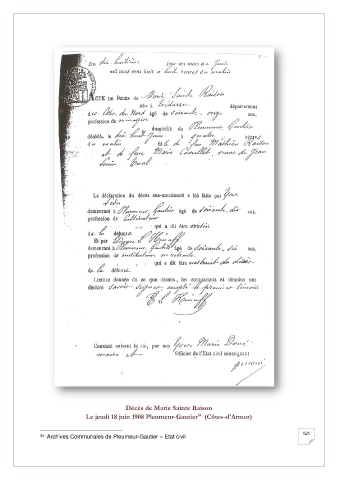 Du dix huitième jour du mois de Juin
mil neuf cent huit à huit heures du matin
ACTE DE Décès de Marie Sainte Raison
née à département
des Côtes du Nord âgé de soixante onze ans,
profession de ménagère
domicilié de Pleumeur Gautier
décédée le dix huit Juin à quatre heures
du matin fille de feu Mathieu Raison
et de feue Marie veuve de Jean
Louis
La déclaration du décès sus-mentionné a été faite par Yves
demeurant à Pleumeur Gautier âgé de soixante dix ans,
profession de Cultivateur
qui a dit être voisin
de la défunte
Et par L Hénaff
demeurant à Pleumeur Gautier âgé de soixante six ans,
profession de instituteur en retraite
qui a dit être
de la défunte
Lecture donnée de ce que dessus, les comparants et témoins ont
déclaré savoir signer, excepté le premier témoin
L Hénaff
Constaté suivant la loi, par moi Yves Marie
maire et Officier de l'Etat civil soussigné
Décès de Marie Sainte Raison
Le jeudi 18 juin 1908 Pleumeur-Gautier (Côtes-d'Armor)
Archives Communales de Pleumeur-Gautier – Etat civil
121